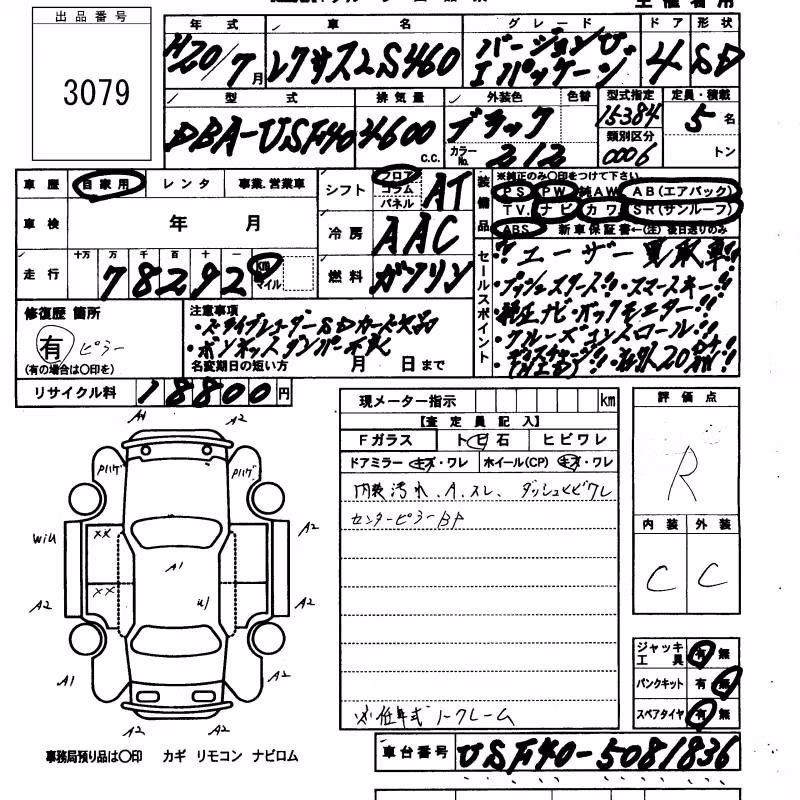 出品番号
3079
年式 車名 グレード ドア 形状
H20/7月 レクサスLS460 バージョンU Iパッケージ 4 SD
型式 排気量 外装色 色替 型式指定 定員・積載
DBA-USF40 4600 C.C. ブラック 15384 5名
カラーNo. 212 類別区分 0006 トン
車歴 自家用 レンタ 事業.営業車
シフト フロア コラム パネル AT
装備品 ※純正のみ○印をつけて下さい
PS PW 純AW AB(エアバック)
TV. ナビ カワ SR(サンルーフ)
ABS 新車保証書←(注)後日送りのみ
車検 年 月
冷房 AAC
走行 十万 万 千 百 十 一
78292 km マイル
燃料 ガソリン
セールスポイント
!!ユーザー買取車!!
・プッシュスタート!!・スマートキー!!
・純正ナビ・バックモニター!!
・クルーズコントロール!!
修復歴 箇所
有 ピラー
(有の場合は○印を)
注意事項
・ドライブレコーダーSDカード欠品
・ボンネットダンパー不良
名変期日の短い方 月 日まで
リサイクル料 18800円
現メーター指示 km
【査定員記入】
Fガラス トビ石 ヒビワレ
ドアミラー キズ・ワレ ホイール(CP) キズ・ワレ
内装汚れ、A、スレ、ダッシュヒビワレ
センターピラーBP
※低年式ノークレーム
評価点
R
内装 外装
C C
ジャッキ工具 有 無
パンクキット 有 無
スペアタイヤ 有 無
A1 A2
A2
WiU XX
XX
A1
A2 A2
A1 A2
A2 A2
事務局預り品は○印 カギ リモコン ナビロム
車台番号 USF40-5081836